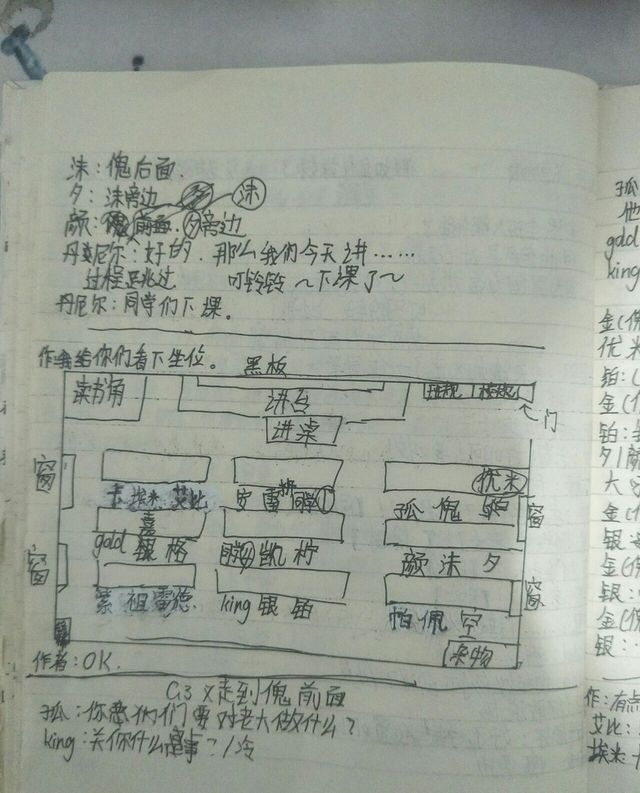 沫：傀后面.
夕：沫旁边 沫
颜： 夕旁边
丹尼尔：好的．那么我们今天讲……
过程跳过 叮铃铃～下课了～
丹尼尔：同学们下课。
作：我给你们看下坐位。 黑板
读书角 讲台 班规 校规
讲桌 ←门
窗 优米
卡 埃米 艾比 安 雷 同学① 孤 傀 窗
嘉
gold 银 格 同学② 凯 柠 颜 沫 夕
窗
紫 祖 雷德 king 银 铂 帕 佩 空 窗
杂物
作者：OK.
走到傀前面
孤：你愚们们要对老大做什么？
king：关你什么事？/冷
孤
他
gold
king
金(傀
优米
铂：
金(
铂：
夕/颜
大
金(
银：
金(傀
银：
金(
银：
作：有点
艾比：
埃米：